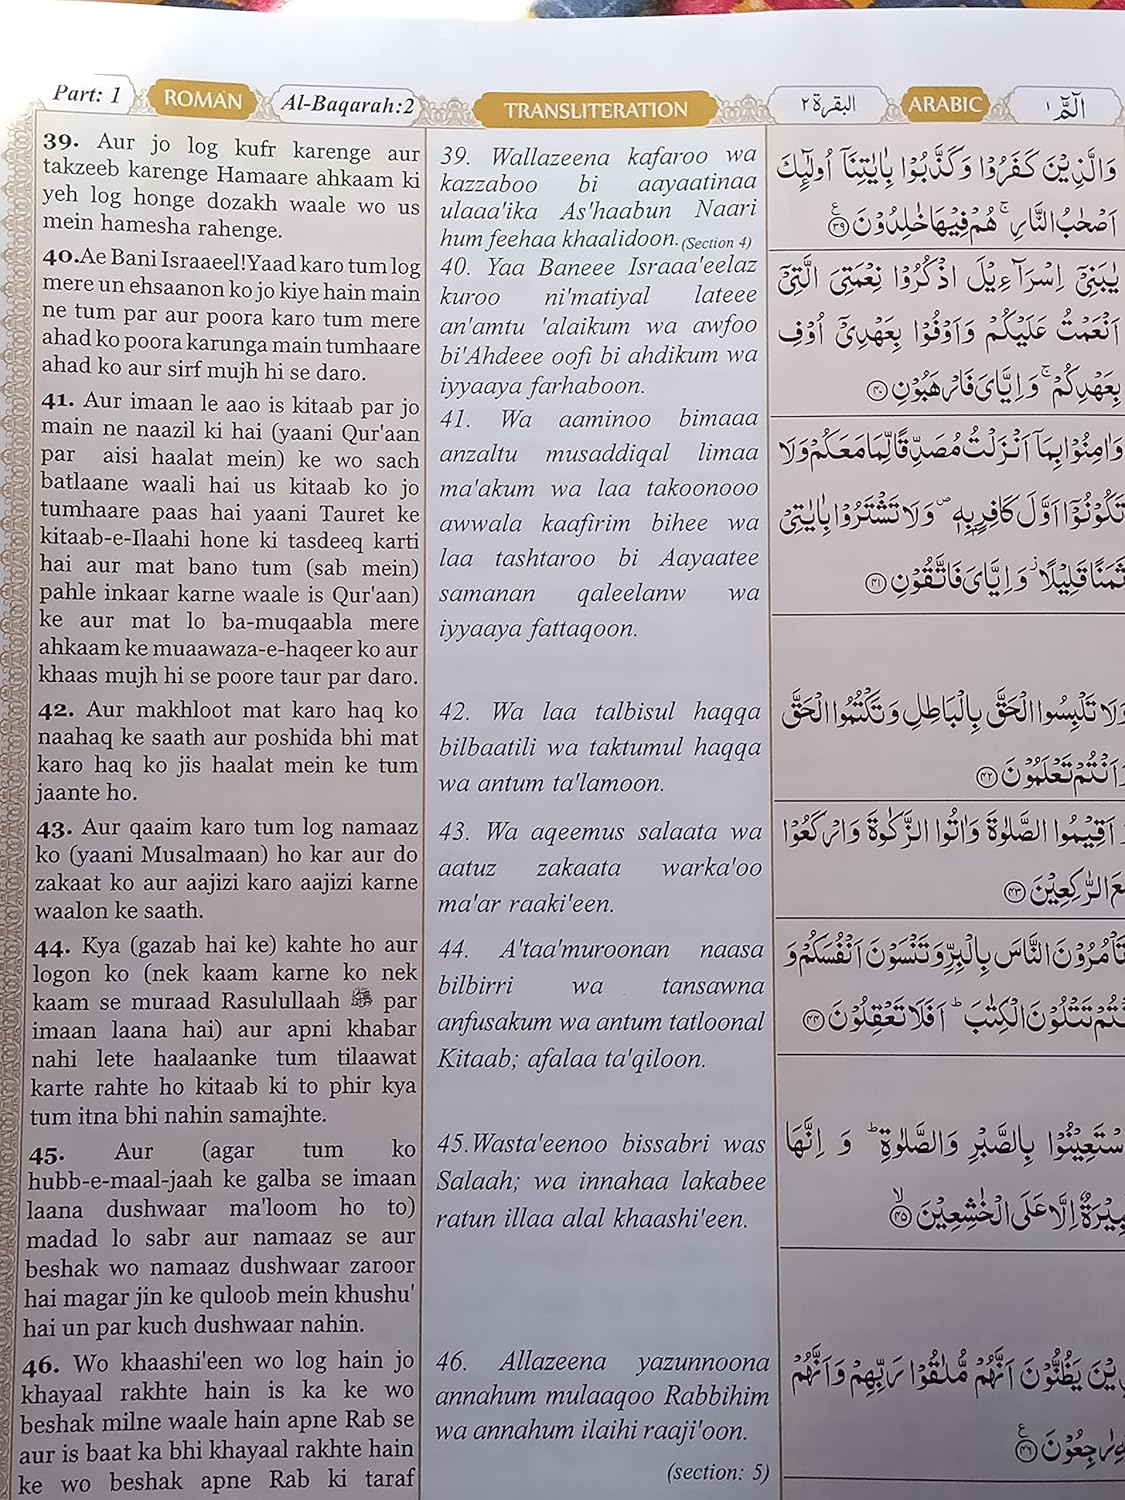 Part: 1
ROMAN
Al-Baqarah:2
TRANSLITERATION
البقرة ٢
ARABIC
الٓمّٓ ١
39. Aur jo log kufr karenge aur
takzeeb karenge Hamaare ahkaam ki
yeh log honge dozakh waale wo us
mein hamesha rahenge.
40.Ae Bani Israaeel!Yaad karo tum log
mere un ehsaanon ko jo kiye hain main
ne tum par aur poora karo tum mere
ahad ko poora karunga main tumhaare
ahad ko aur sirf mujh hi se daro.
41. Aur imaan le aao is kitaab par jo
main ne naazil ki hai (yaani Qur'aan
par aisi haalat mein) ke wo sach
batlaane waali hai us kitaab ko jo
tumhaare paas hai yaani Tauret ke
kitaab-e-Ilaahi hone ki tasdeeq karti
hai aur mat bano tum (sab mein)
pahle inkaar karne waale is Qur'aan)
ke aur mat lo ba-muqaabla mere
ahkaam ke muaawaza-e-haqeer ko aur
khaas mujh hi se poore taur par daro.
42. Aur makhloot mat karo haq ko
naahaq ke saath aur poshida bhi mat
karo haq ko jis haalat mein ke tum
jaante ho.
43. Aur qaaim karo tum log namaaz
ko (yaani Musalmaan) ho kar aur do
zakaat ko aur aajizi karo aajizi karne
waalon ke saath.
44. Kya (gazab hai ke) kahte ho aur
logon ko (nek kaam karne ko nek
kaam se muraad Rasulullaah ﷺ par
imaan laana hai) aur apni khabar
nahi lete haalaanke tum tilaawat
karte rahte ho kitaab ki to phir kya
tum itna bhi nahin samajhte.
45. Aur (agar tum ko
hubb-e-maal-jaah ke galba se imaan
laana dushwaar ma'loom ho to)
madad lo sabr aur namaaz se aur
beshak wo namaaz dushwaar zaroor
hai magar jin ke quloob mein khushu'
hai un par kuch dushwaar nahin.
46. Wo khaashi'een wo log hain jo
khayaal rakhte hain is ka ke wo
beshak milne waale hain apne Rab se
aur is baat ka bhi khayaal rakhte hain
ke wo beshak apne Rab ki taraf
39. Wallazeena kafaroo wa
kazzaboo bi aayaatinaa
ulaaa'ika As'haabun Naari
hum feehaa khaalidoon. (Section 4)
40. Yaa Baneee Israaa'eelaz
kuroo ni'matiyal lateee
an'amtu 'alaikum wa awfoo
bi'Ahdeee oofi bi ahdikum wa
iyyaaya farhaboon.
41. Wa aaminoo bimaaa
anzaltu musaddiqal limaa
ma'akum wa laa takoonooo
awwala kaafirim bihee wa
laa tashtaroo bi Aayaatee
samanan qaleelanw wa
iyyaaya fattaqoon.
42. Wa laa talbisul haqqa
bilbaatili wa taktumul haqqa
wa antum ta'lamoon.
43. Wa aqeemus salaata wa
aatuz zakaata warka'oo
ma'ar raaki'een.
44. A'taa'muroonan naasa
bilbirri wa tansawna
anfusakum wa antum tatloonal
Kitaab; afalaa ta'qiloon.
45.Wasta'eenoo bissabri was
Salaah; wa innahaa lakabee
ratun illaa alal khaashi'een.
46. Allazeena yazunnoona
annahum mulaaqoo Rabbihim
wa annahum ilaihi raaji'oon.
(section: 5)
وَالَّذِيْنَ كَفَرُوْا وَكَذَّبُوْا بِاٰيٰتِنَآ اُولٰٓئِكَ
اَصْحٰبُ النَّارِ ۚ هُمْ فِيْهَا خٰلِدُوْنَ ﴿٣٩﴾
يٰبَنِيْٓ اِسْرَآءِيْلَ اذْكُرُوْا نِعْمَتِيَ الَّتِيْٓ
اَنْعَمْتُ عَلَيْكُمْ وَاَوْفُوْا بِعَهْدِيْٓ اُوْفِ
بِعَهْدِكُمْ ۚ وَاِيَّايَ فَارْهَبُوْنِ ﴿٤٠﴾
وَاٰمِنُوْا بِمَآ اَنْزَلْتُ مُصَدِّقًا لِّمَا مَعَكُمْ وَلَا
تَكُوْنُوْٓا اَوَّلَ كَافِرٍۭ بِهٖ ۖ وَلَا تَشْتَرُوْا بِاٰيٰتِيْ
ثَمَنًا قَلِيْلًا ۡ وَاِيَّايَ فَاتَّقُوْنِ ﴿٤١﴾
وَلَا تَلْبِسُوا الْحَقَّ بِالْبَاطِلِ وَتَكْتُمُوا الْحَقَّ
اَنْتُمْ تَعْلَمُوْنَ ﴿٤٢﴾
اَقِيْمُوا الصَّلٰوةَ وَاٰتُوا الزَّكٰوةَ وَارْكَعُوْا
الرّٰكِعِيْنَ ﴿٤٣﴾
النَّاسَ بِالْبِرِّ وَتَنْسَوْنَ اَنْفُسَكُمْ وَ
تَتْلُوْنَ الْكِتٰبَ ؕ اَفَلَا تَعْقِلُوْنَ ﴿٤٤﴾
بِالصَّبْرِ وَالصَّلٰوةِ ؕ وَ اِنَّهَا
اِلَّا عَلَى الْخٰشِعِيْنَ ﴿٤٥﴾
يَظُنُّوْنَ اَنَّهُمْ مُّلٰقُوْا رَبِّهِمْ وَاَنَّهُمْ
رٰجِعُوْنَ ﴿٤٦﴾